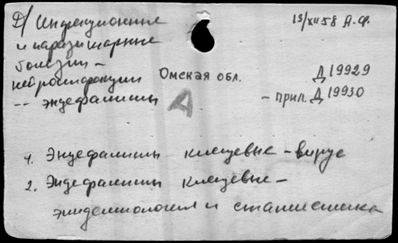 Д/ Инфекционные 15/XII 58 А.Ф.
и паразитарные
болезни –
нейроинфекции Омская обл. Д 19929
-- энцефалиты А – прил. Д 19930
1. Энцефалиты клещевые – вирус
2. Энцефалиты клещевые –
эпидемиология и статистика